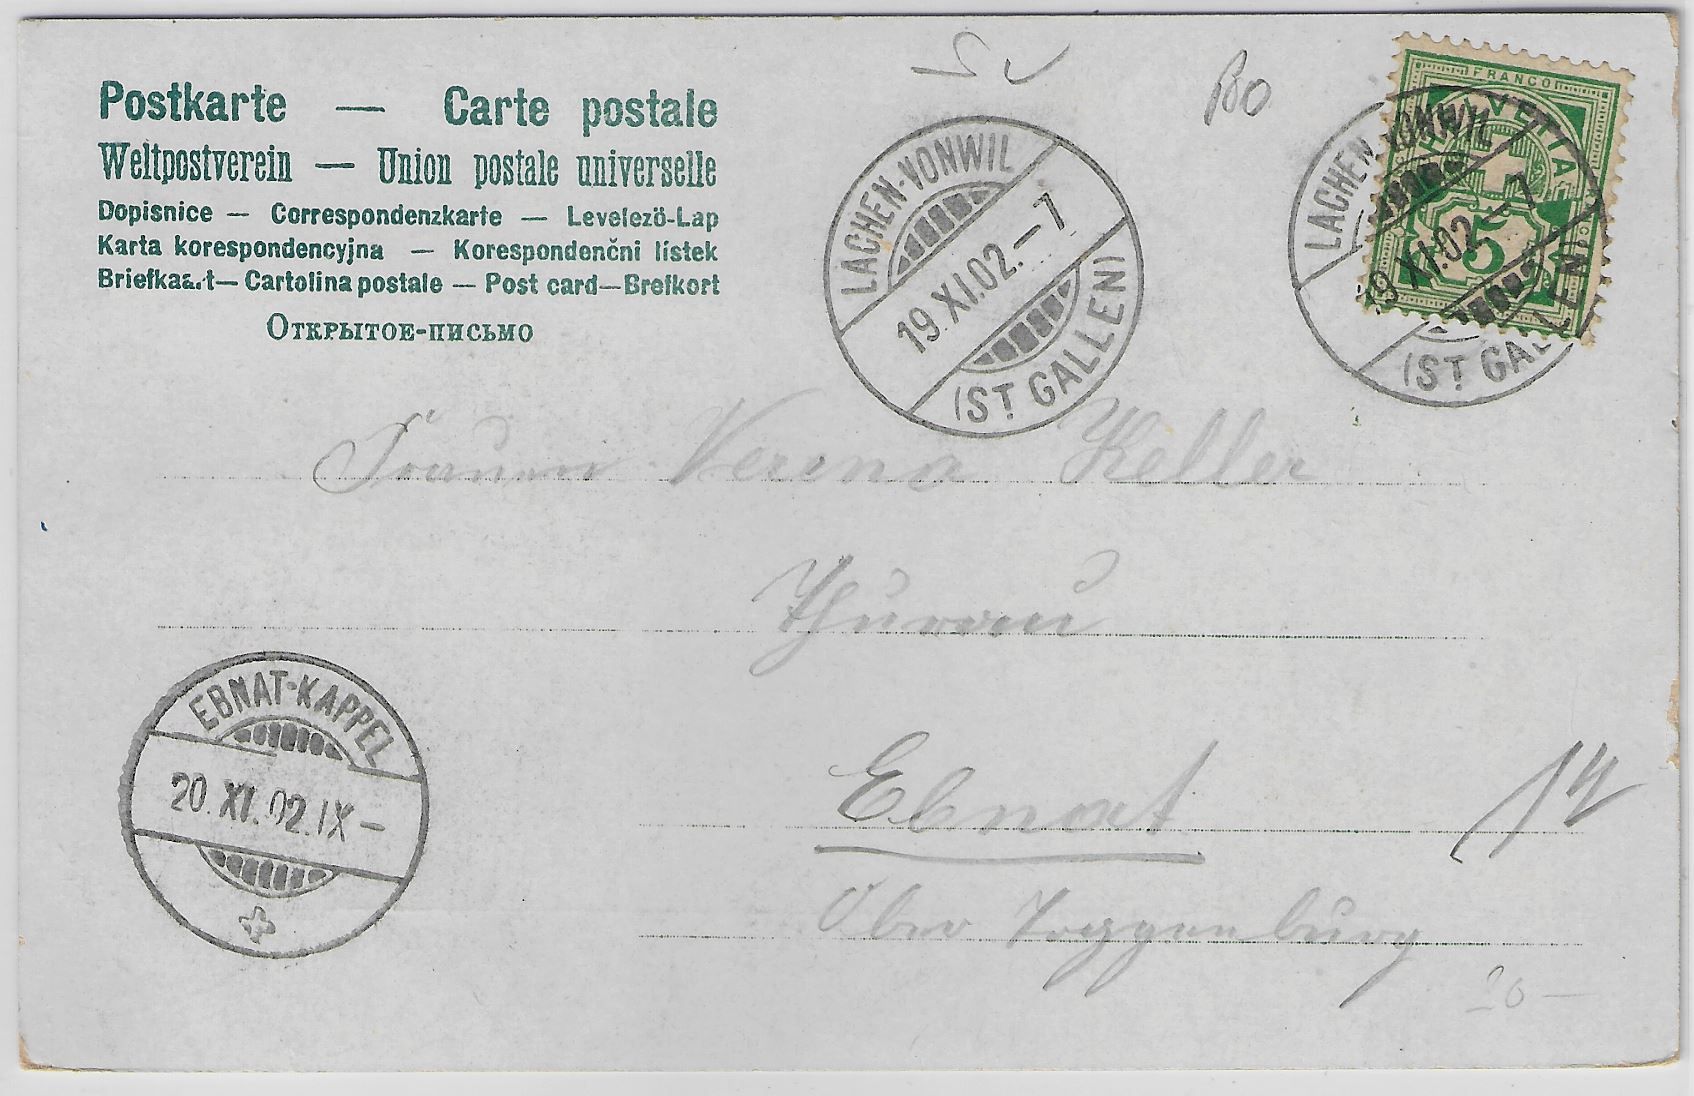 Postkarte — Carte postale
Weltpostverein — Union postale universelle
Dopisnice — Correspondenzkarte — Levelező-Lap
Karta korespondencyjna — Korespondenčni lístek
Briefkaart — Cartolina postale — Post card — Brefkort
Открытое-письмо
LACHEN-VONWIL
19.XI.02.–7
(ST. GALLEN)
FRANCO
HELVETIA
5
LACHEN-VONWIL
19.XI.02.–7
(ST. GALLEN)
Frauen Verena Keller
Thurau
Ebnat
Ober Toggenburg
EBNAT-KAPPEL
20.XI.02.IX–
20 —